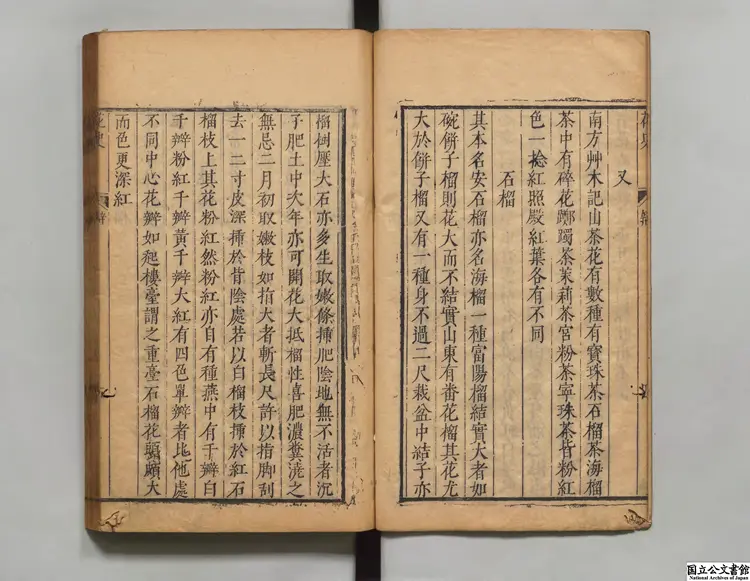 又
南方艸木記山茶花有數種有寶珠茶石榴茶海榴
茶中有碎花躑躅茶茉莉茶宮粉茶寧珠茶皆粉紅
色一捻紅照殿紅葉各有不同
石榴
其本名安石榴亦名海榴一種富陽榴結實大者如
碗餅子榴則花大而不結實山東有番花榴其花尤
大於餅子榴又有一種身不過二尺栽盆中結子亦
榴樹壓大石亦多生取嫩條揷肥陰地無不活者沉
子肥土中次年亦可開花大抵榴性喜肥濃糞澆之
無忌二月初取嫩枝如指大者斬長尺許以指脚刮
去一二寸皮深揷於背陰處若以白榴枝揷於紅石
榴枝上其花粉紅然粉紅亦自有種燕中有千瓣白
千瓣粉紅千瓣黃千瓣大紅有四色單瓣者比他處
不同中心花瓣如起樓臺謂之重臺石榴花頭頗大
而色更深紅
花史
国立公文書館
National Archives of Japan